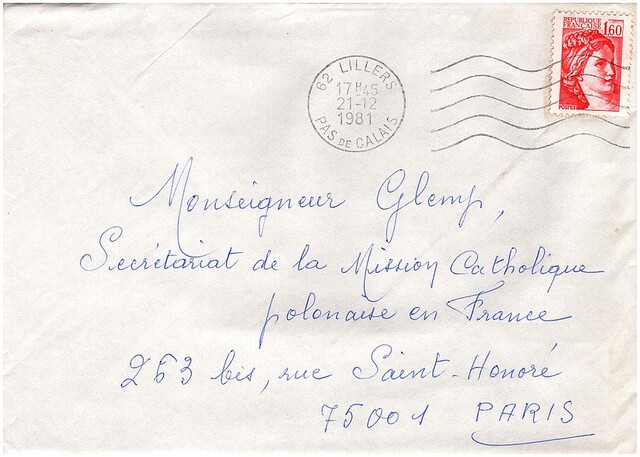 REPUBLIQUE
FRANCAISE 1,60
POSTES
62 LILLERS
17H45
21-12
1981
PAS DE CALAIS
Monseigneur Glemp,
Secrétariat de la Mission Catholique
polonaise en France
253 bis, rue Saint-Honoré
75001 PARIS